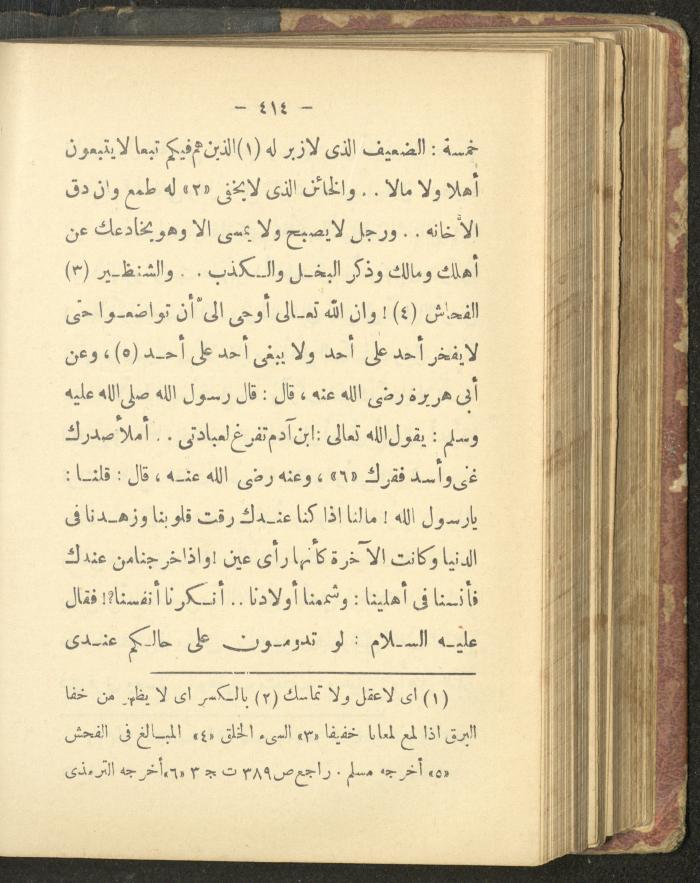 - ٤١٤ -
خمسة : الضعيف الذى لازبر له (١) الذين هم فيكم تبعا لايتبعون
أهلا ولا مالا . . والخائن الذى لايخفى «٢» له طمع وان دق
الا خانه . . ورجل لايصبح ولا يمسى الا وهو يخادعك عن
أهلك ومالك وذكر البخل والكذب . . والشنظير (٣)
الفحاش (٤) ! وان الله تعالى أوحى الىّ أن تواضعوا حتى
لايفخر أحد على أحد ولا يبغى أحد على أحد (٥) ، وعن
أبى هريرة رضى الله عنه ، قال : قال رسول الله صلى الله عليه
وسلم : يقول الله تعالى : ابن آدم تفرغ لعبادتى . . أملأ صدرك
غنى وأسد فقرك «٦» ، وعنه رضى الله عنه ، قال : قلنا :
يارسول الله ! مالنا اذا كنا عندك رقت قلوبنا وزهدنا فى
الدنيا وكانت الآخرة كأنها رأى عين ! واذا خرجنا من عندك
فأنسنا فى أهلينا : وشممنا أولادنا . . أنكرنا أنفسنا ؟! فقال
عليه السلام : لو تدومون على حالكم عندى
(١) اى لاعقل ولا تماسك (٢) بالكسر اى لا يظهر من خفا
البرق اذا لمع لمعانا خفيفا «٣» السىء الخلق «٤» المبالغ فى الفحش
«٥» أخرجه مسلم . راجع ص ٣٨٩ ت ج ٣ «٦» أخرجه الترمذى